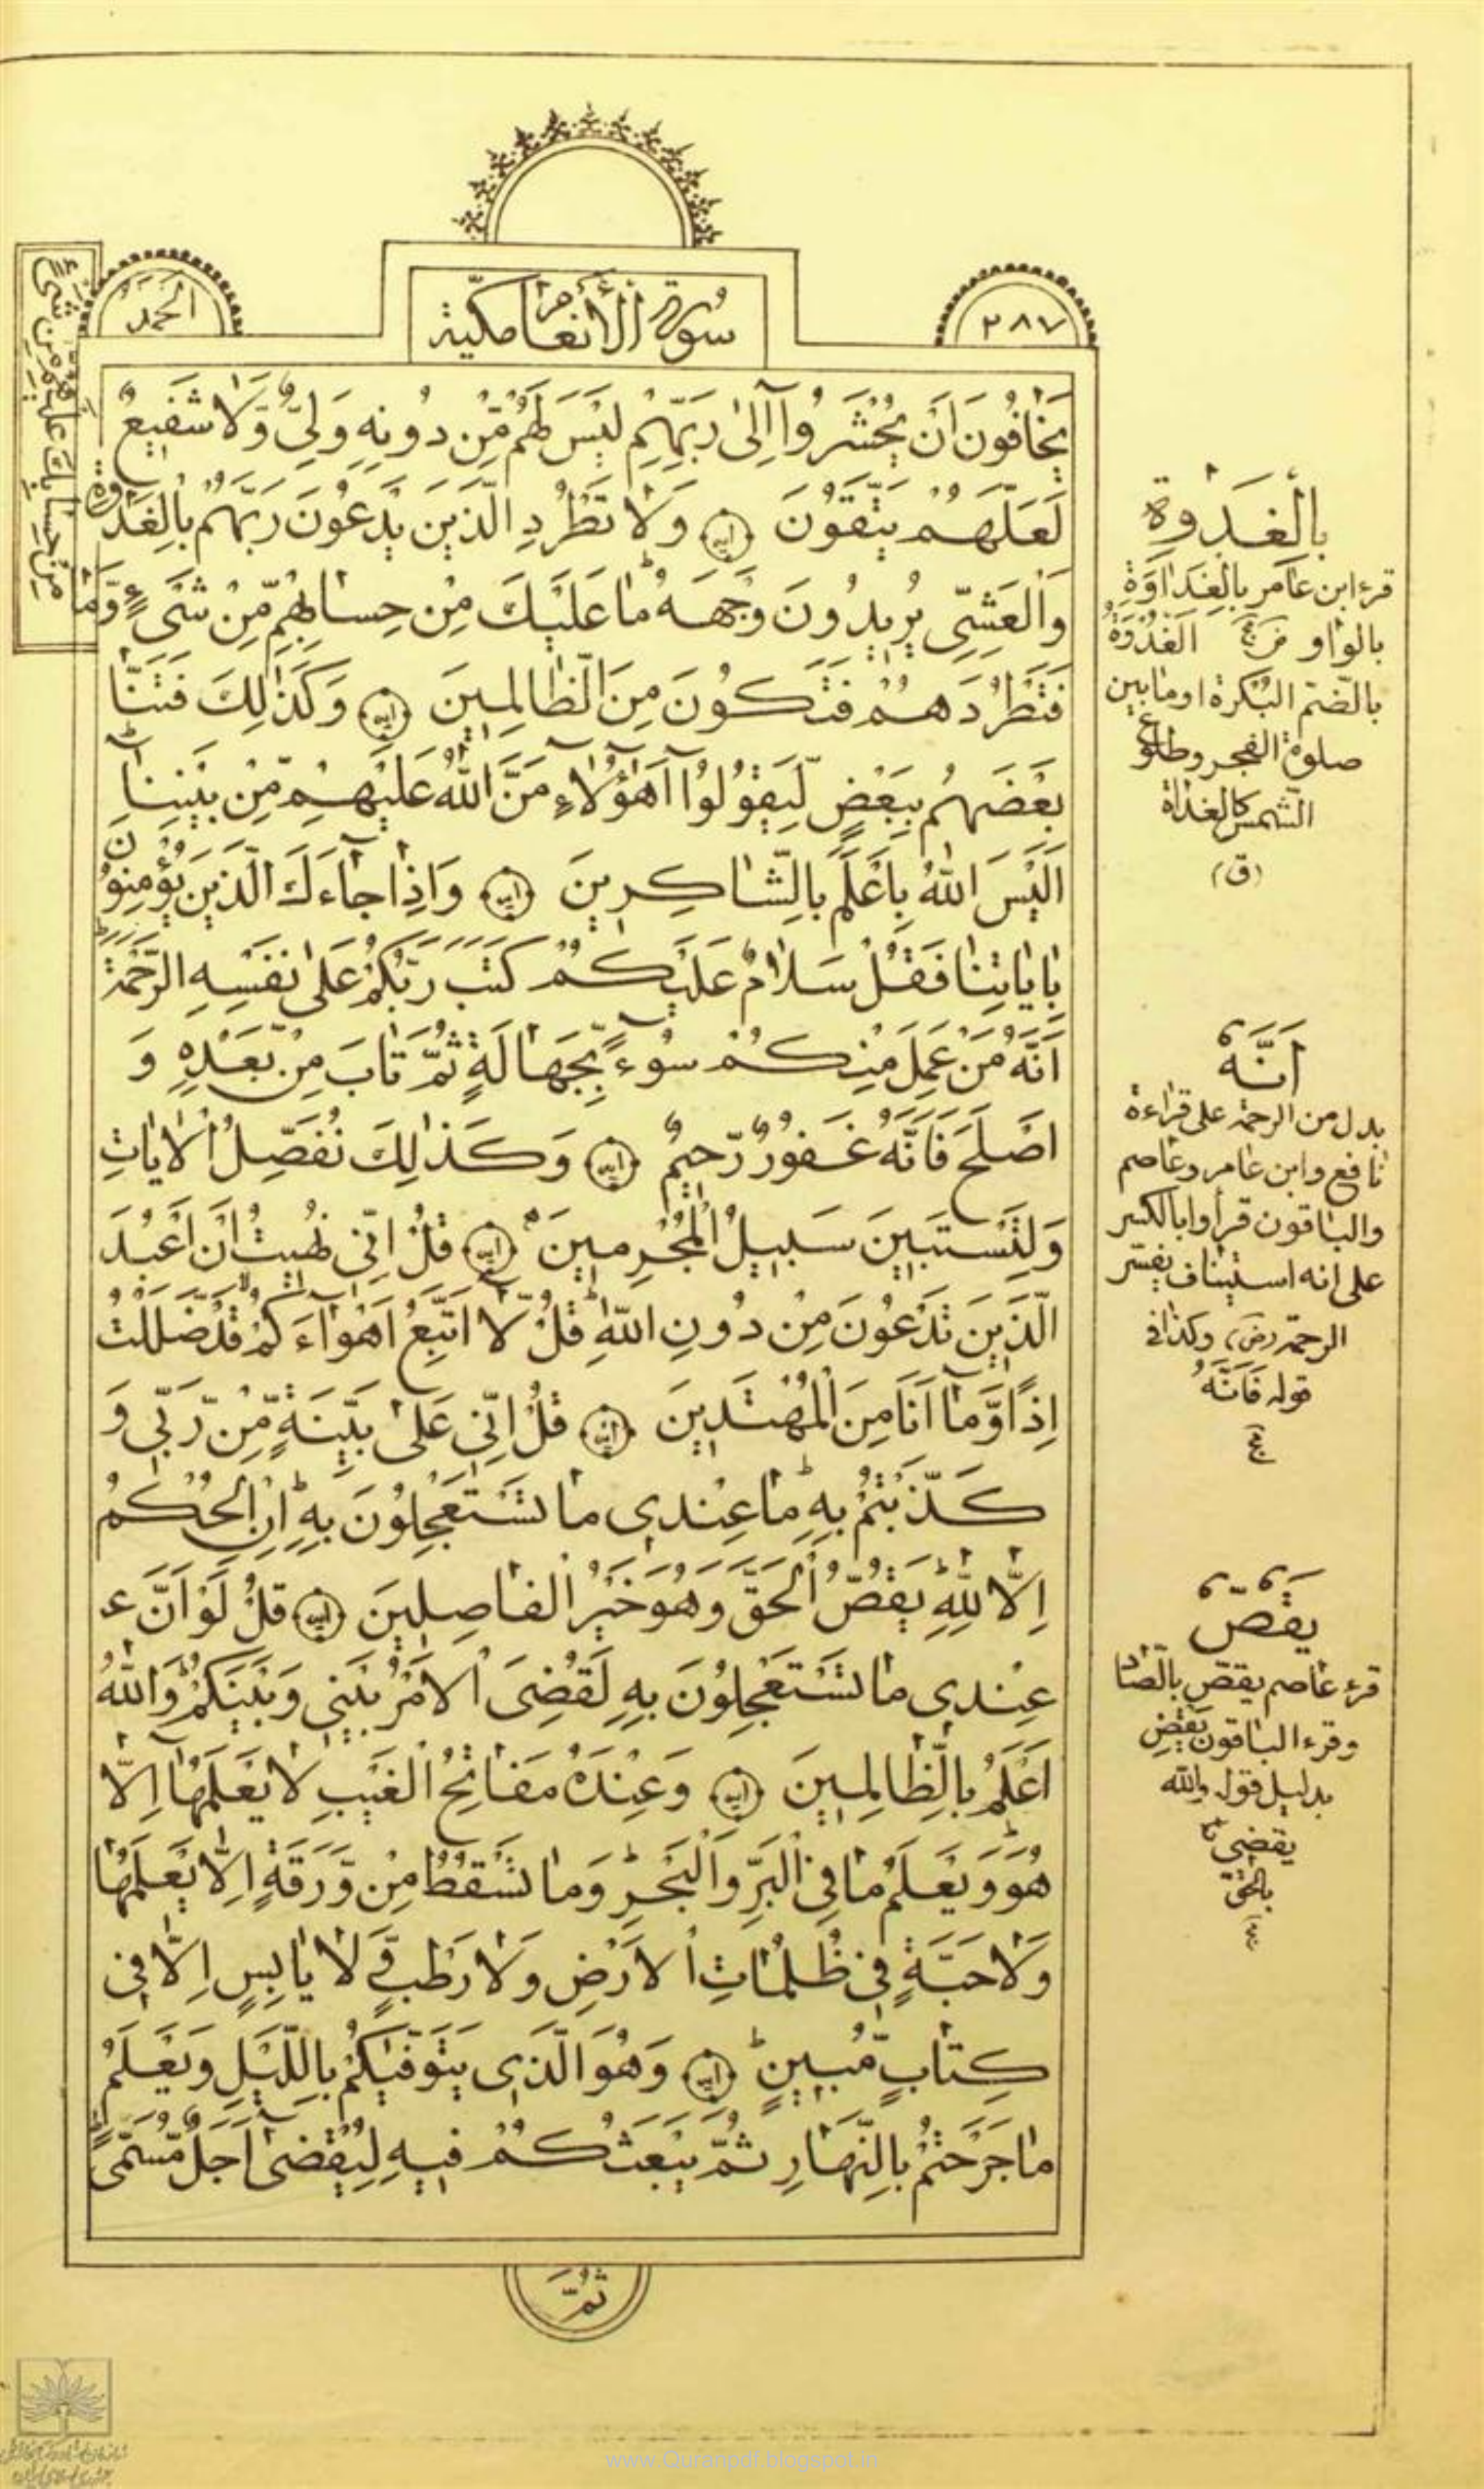 ٢٨٧
سُورَةُ الأَنعَام مكّية
الحمد
يَخَافُونَ اَنْ يُحْشَرُوا اِلىٰ رَبِّهِمْ لَيْسَ لَهُمْ مِّنْ دُونِهٖ وَلِىٌّ وَّلَا شَفِيعٌ
لَعَلَّهُمْ يَتَّقُونَ وَلَا تَطْرُدِ الَّذِينَ يَدْعُونَ رَبَّهُمْ بِالْغَدٰوةِ
وَالْعَشِىِّ يُرِيدُونَ وَجْهَهُ مَا عَلَيْكَ مِنْ حِسَابِهِمْ مِّنْ شَىْءٍ وَّمَا
مِنْ حِسَابِكَ عَلَيْهِمْ مِّنْ شَىْءٍ
فَتَطْرُدَهُمْ فَتَكُونَ مِنَ الظَّالِمِينَ وَكَذٰلِكَ فَتَنَّا
بَعْضَهُمْ بِبَعْضٍ لِّيَقُولُوا اَهٰؤُلَاءِ مَنَّ اللّٰهُ عَلَيْهِمْ مِّنْ بَيْنِنَا
اَلَيْسَ اللّٰهُ بِاَعْلَمَ بِالشَّاكِرِينَ وَاِذَا جَاءَكَ الَّذِينَ يُؤْمِنُونَ
بِاٰيَاتِنَا فَقُلْ سَلَامٌ عَلَيْكُمْ كَتَبَ رَبُّكُمْ عَلىٰ نَفْسِهِ الرَّحْمَةَ
اَنَّهُ مَنْ عَمِلَ مِنْكُمْ سُوءً بِّجَهَالَةٍ ثُمَّ تَابَ مِنْ بَعْدِهٖ وَ
اَصْلَحَ فَاَنَّهُ غَفُورٌ رَّحِيمٌ وَكَذٰلِكَ نُفَصِّلُ الْاٰيَاتِ
وَلِتَسْتَبِينَ سَبِيلُ الْمُجْرِمِينَ قُلْ اِنِّى نُهِيتُ اَنْ اَعْبُدَ
الَّذِينَ تَدْعُونَ مِنْ دُونِ اللّٰهِ قُلْ لَّا اَتَّبِعُ اَهْوَاءَكُمْ قَدْ ضَلَلْتُ
اِذًا وَّمَا اَنَا مِنَ الْمُهْتَدِينَ قُلْ اِنِّى عَلىٰ بَيِّنَةٍ مِّنْ رَّبِّى وَ
كَذَّبْتُمْ بِهٖ مَا عِنْدِى مَا تَسْتَعْجِلُونَ بِهٖ اِنِ الْحُكْمُ
اِلَّا لِلّٰهِ يَقُصُّ الْحَقَّ وَهُوَ خَيْرُ الْفَاصِلِينَ قُلْ لَوْ اَنَّ
عِنْدِى مَا تَسْتَعْجِلُونَ بِهٖ لَقُضِىَ الْاَمْرُ بَيْنِى وَبَيْنَكُمْ وَاللّٰهُ
اَعْلَمُ بِالظَّالِمِينَ وَعِنْدَهُ مَفَاتِحُ الْغَيْبِ لَا يَعْلَمُهَا اِلَّا
هُوَ وَيَعْلَمُ مَا فِى الْبَرِّ وَالْبَحْرِ وَمَا تَسْقُطُ مِنْ وَّرَقَةٍ اِلَّا يَعْلَمُهَا
وَلَا حَبَّةٍ فِى ظُلُمَاتِ الْاَرْضِ وَلَا رَطْبٍ وَّلَا يَابِسٍ اِلَّا فِى
كِتَابٍ مُّبِينٍ وَهُوَ الَّذِى يَتَوَفّٰيكُمْ بِاللَّيْلِ وَيَعْلَمُ
مَا جَرَحْتُمْ بِالنَّهَارِ ثُمَّ يَبْعَثُكُمْ فِيهِ لِيُقْضىٰ اَجَلٌ مُّسَمًّى
ثُمَّ
بِالْغَدٰوةِ
قرء ابن عامر بالغداوة
بالواو الغُدْوَةُ
بالضّم البُكرة او ما بين
صلوة الفجر وطلوع
الشّمس كالغداة
(ق)
اَنَّهُ
بدل من الرحمة على قراءة
نافع وابن عامر وعاصم
والباقون قرأوا بالكسر
على انه استيناف يفسّر
الرحمة (ض) وكذا فى
قوله فَاَنَّهُ
يَقُصُّ
قرء عاصم يقصّ بالصّاد
وقرء الباقون يَقْضِ
بدليل قوله والله
يقضى
بالحقّ
www.Quranpdf.blogspot.in